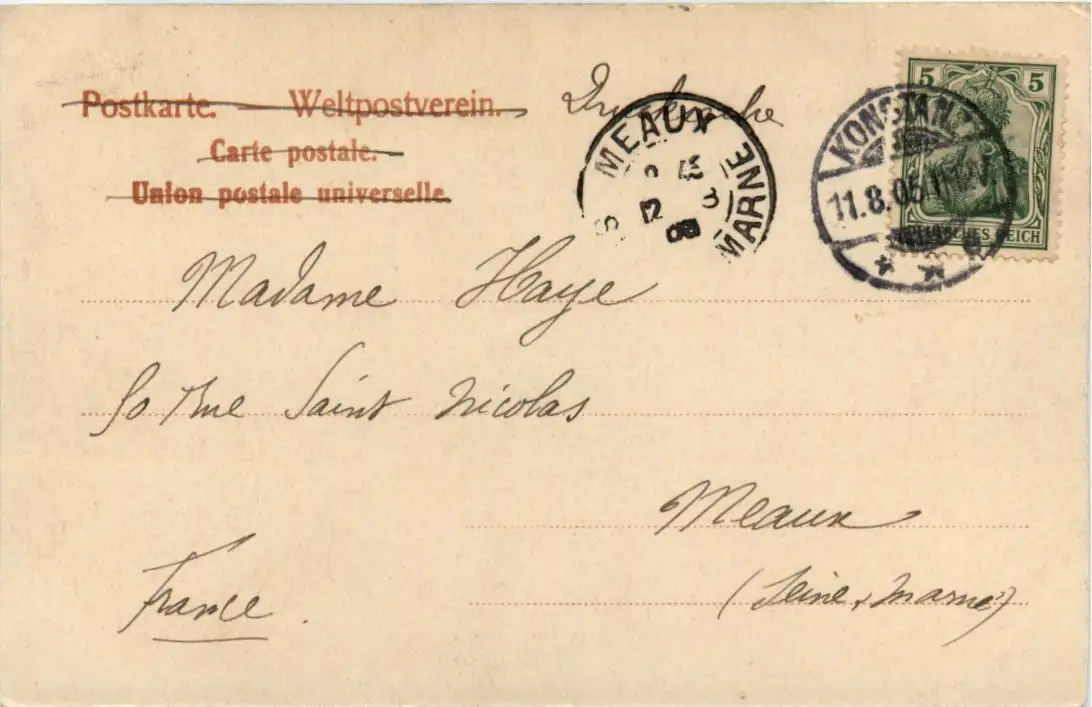 Postkarte. — Weltpostverein. Drucksache
Carte postale.
Union postale universelle.
MEAUX
S MARNE
12 8
KONSTANZ
11.8.06.
5 5
DEUTSCHES REICH
Madame Haye
50 rue Saint Nicolas
Meaux
(Seine, Marne)
France.